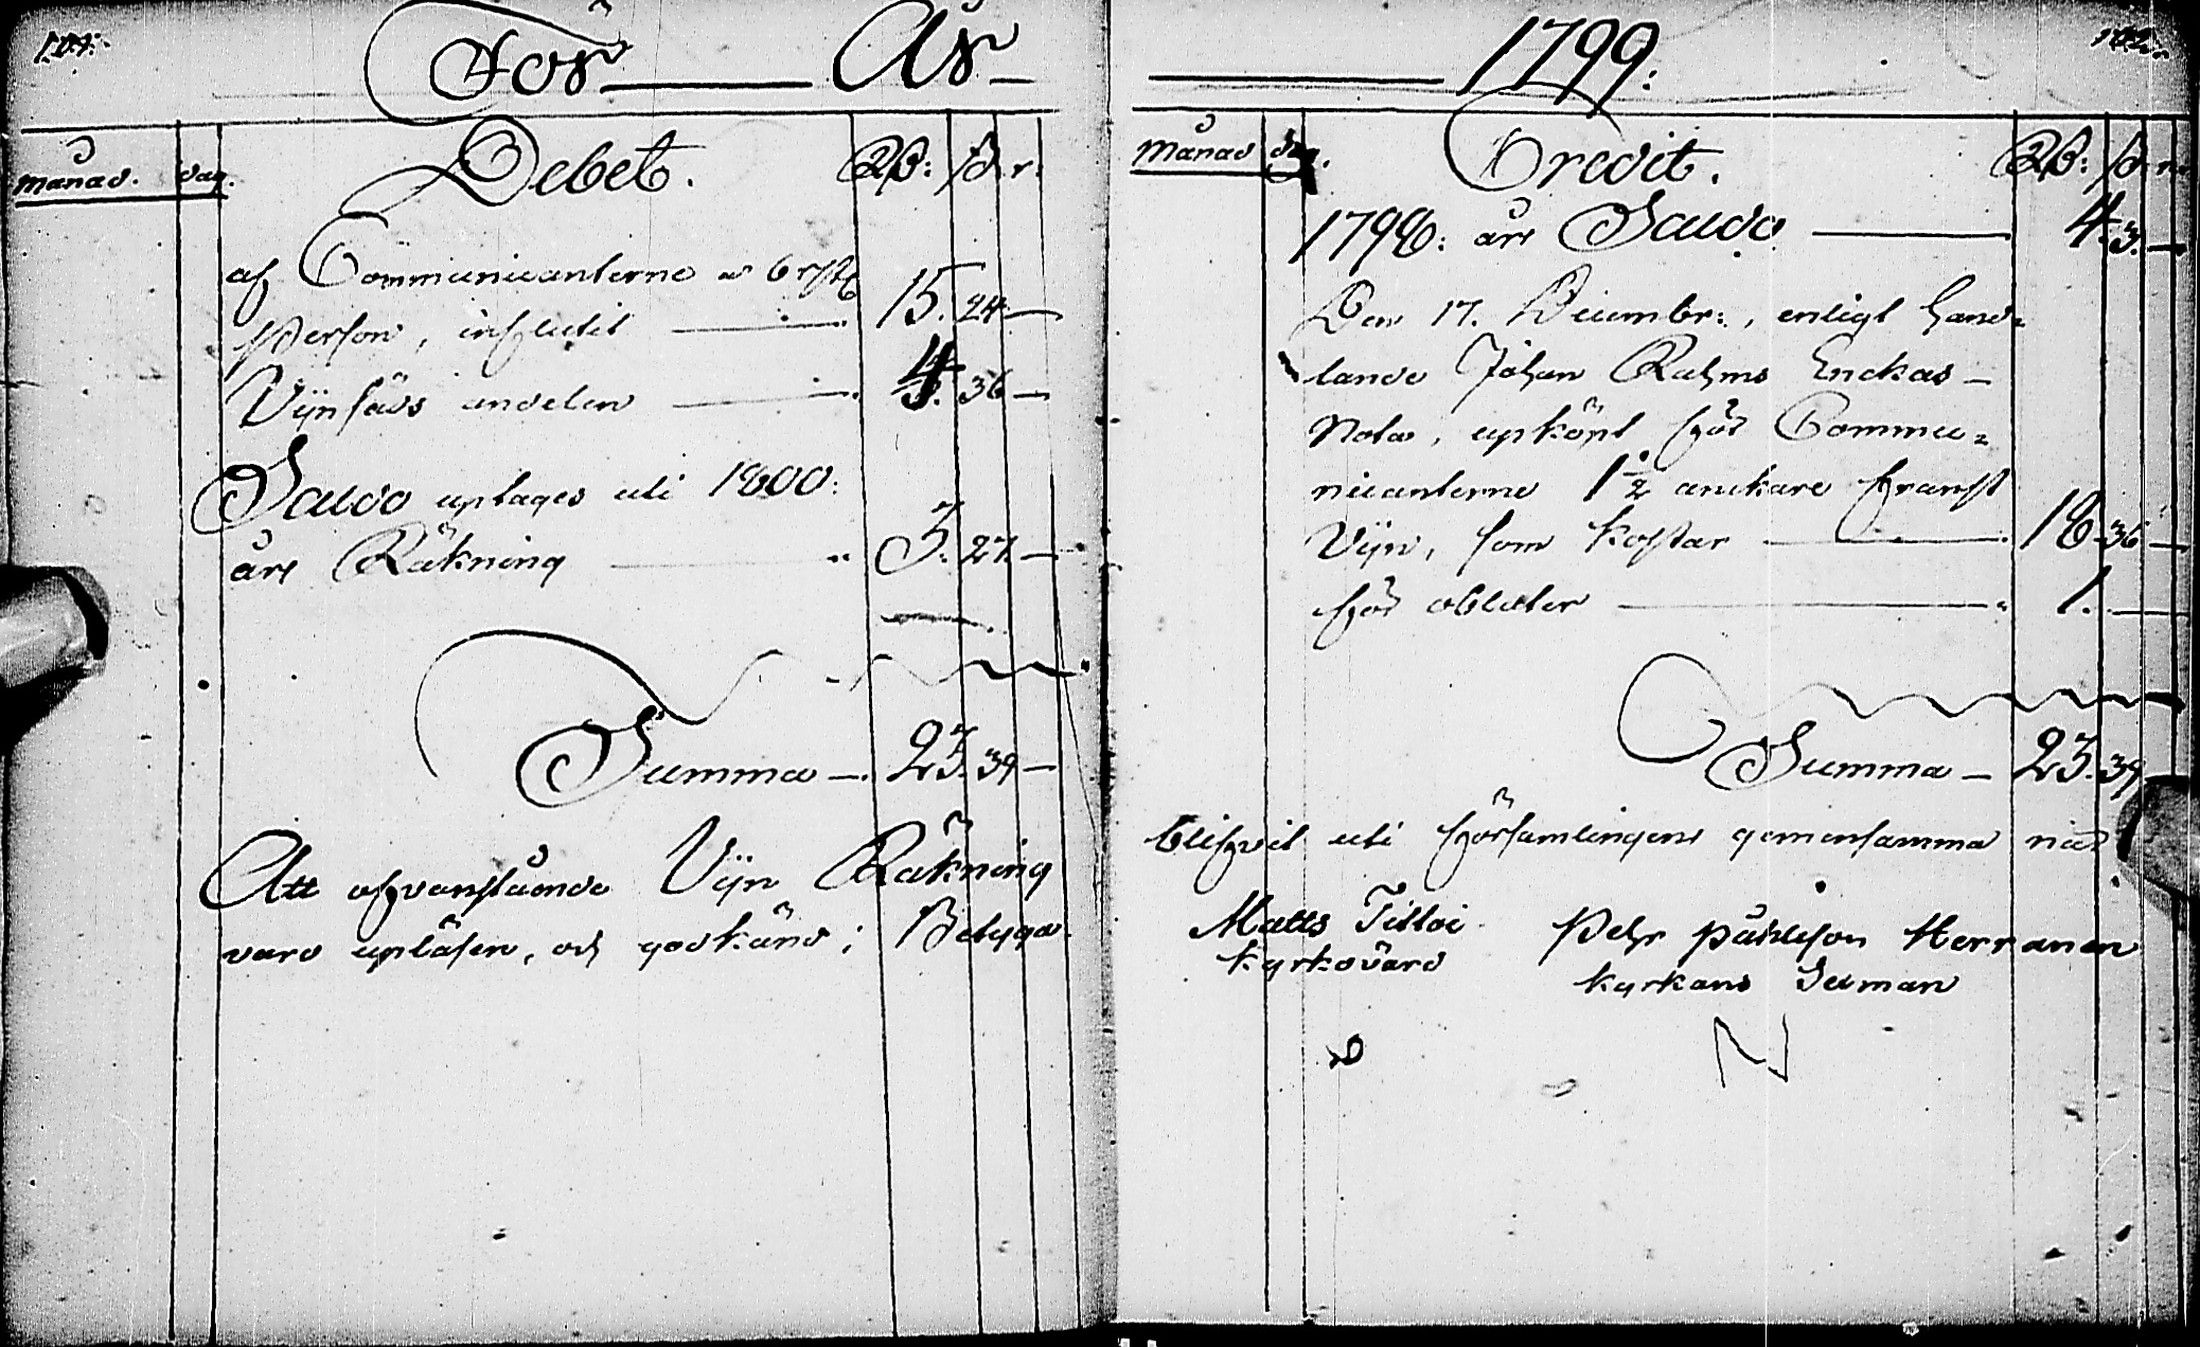 För År 1799:
Månad. dag. Debet. RD: sk. r.
af Communicanterne a 6 rst
Person, influtit 15. 24. —
Vijnsäds andelen 4. 36 —
Saldo uptages uti 1800:
års Räkning 3. 27. —
Summa —. 23. 39 —
Att ofvanstående Vijn Räkning
vard upläsen, och godkänd; Betyga
Månad dag. Credit. RD: sk. r.
1798: års Saldo 4. 3. —
Den 17. Decembr:, enligt Hand=
lande Johan Rahms Enckas —
Nota, upköpt för Commu=
nicanterne 1 1/2 anckare Franskt
Vijn, som kostar 18. 36 —
för oblater 1. —
Summa — 23. 39
blifvit uti Församlingens gemensamma
Matts Tilloi Pehr Påhlsson Herranen
kyrkovärd kyrkans Sexman
N